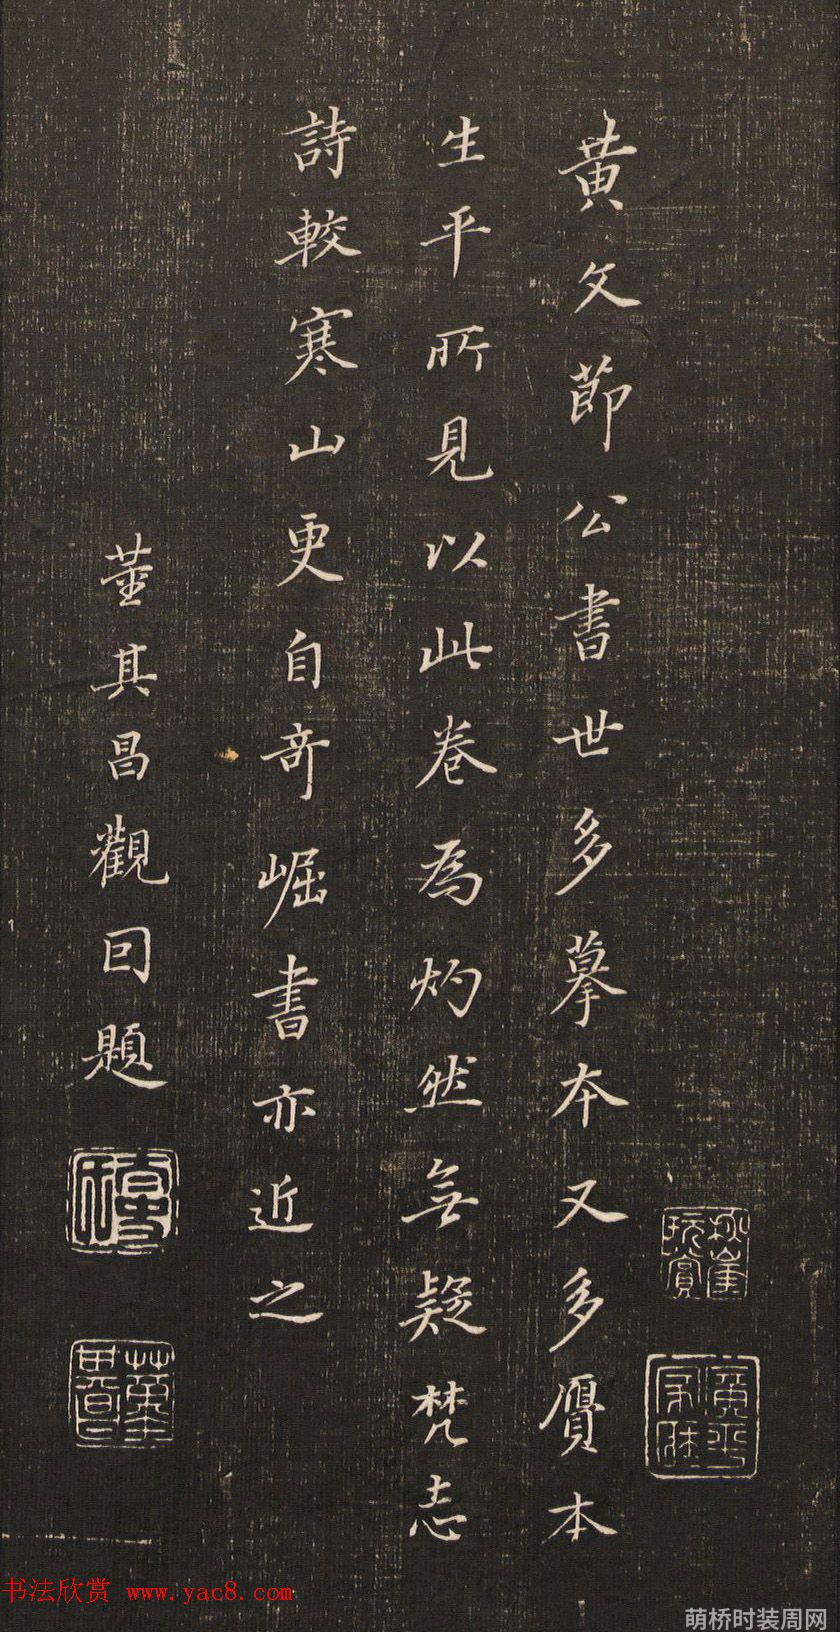 黄文節公書世多摹本又多贗本
生平所見以此卷為灼然無疑梵志
詩較寒山更自奇崛書亦近之
董其昌觀因題
書法欣赏 www.yac8.com
萌桥时装周网